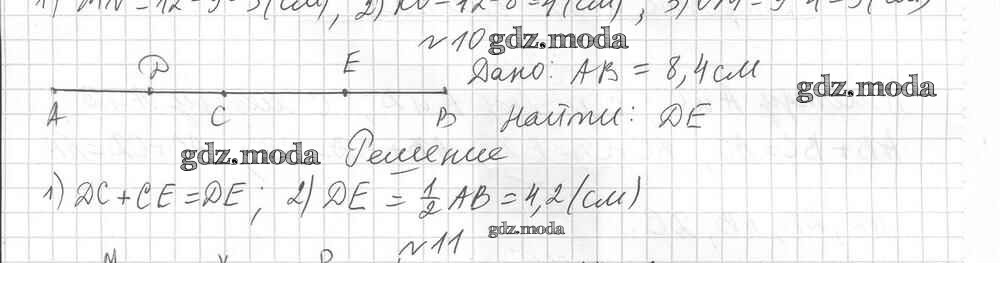 1) MN = 12 - 9 = 3 (см), 2) KV = 12 - 8 = 4 (см), 3)
№10 gdz.moda
Дано: AB = 8,4 см
gdz.moda
D E
A C B
Найти: DE
gdz.moda Решение
1) DC + CE = DE; 2) DE = 1/2 AB = 4,2 (см)
gdz.moda
№11